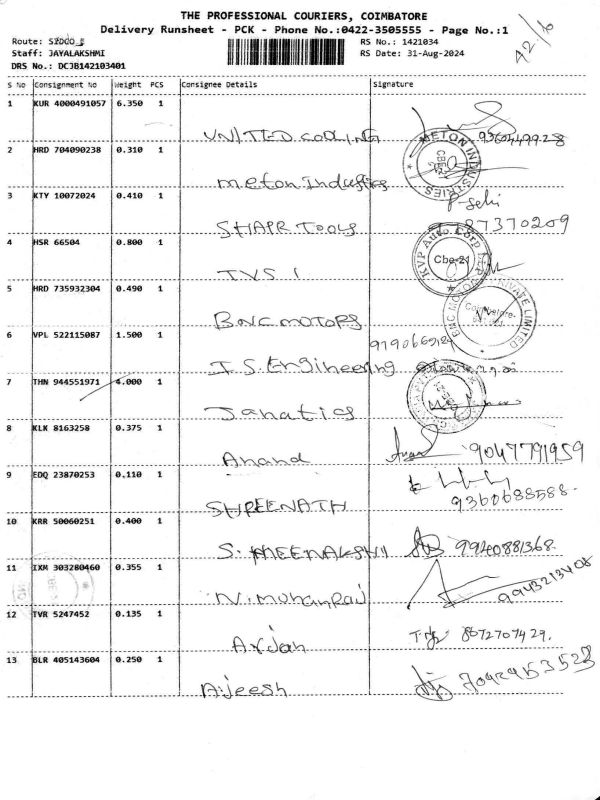 THE PROFESSIONAL COURIERS, COIMBATORE
Delivery Runsheet - PCK - Phone No.:0422-3505555 - Page No.:1
Route: SIDCO_E
RS No.: 1421034
42/6
Staff: JAYALAKSHMI
RS Date: 31-Aug-2024
DRS No.: DCJB142103401
S No Consignment No Weight PCS Consignee Details Signature
1 KUR 4000491057 6.350 1
UNITED COOLING
2 HRD 704090238 0.310 1
METON INDUSTRIES CBE-21
meton Industies
3 KTY 10072024 0.410 1
SHAPR TOOLS
4 HSR 66504 0.800 1
KVP Auto Corp Cbe-21
TVS 1
5 HRD 735932304 0.490 1
BNC MOTORS PRIVATE LIMITED Coimbatore
BNC MOTORS
6 VPL 522115087 1.500 1
I.S. Engineering
7 THN 944551971 4.000 1
Janatics
8 KLK 8163258 0.375 1
Anand 9047791959
9 EDQ 23870253 0.110 1
SHREENATH 9360688588
10 KRR 50060251 0.400 1
S. MEENAKSHI 9940881368
11 IXM 303280460 0.355 1
N. mohanraj 9943213408
12 TVR 5247452 0.135 1
Arjan 8072707429
13 BLR 405143604 0.250 1
Ajeesh